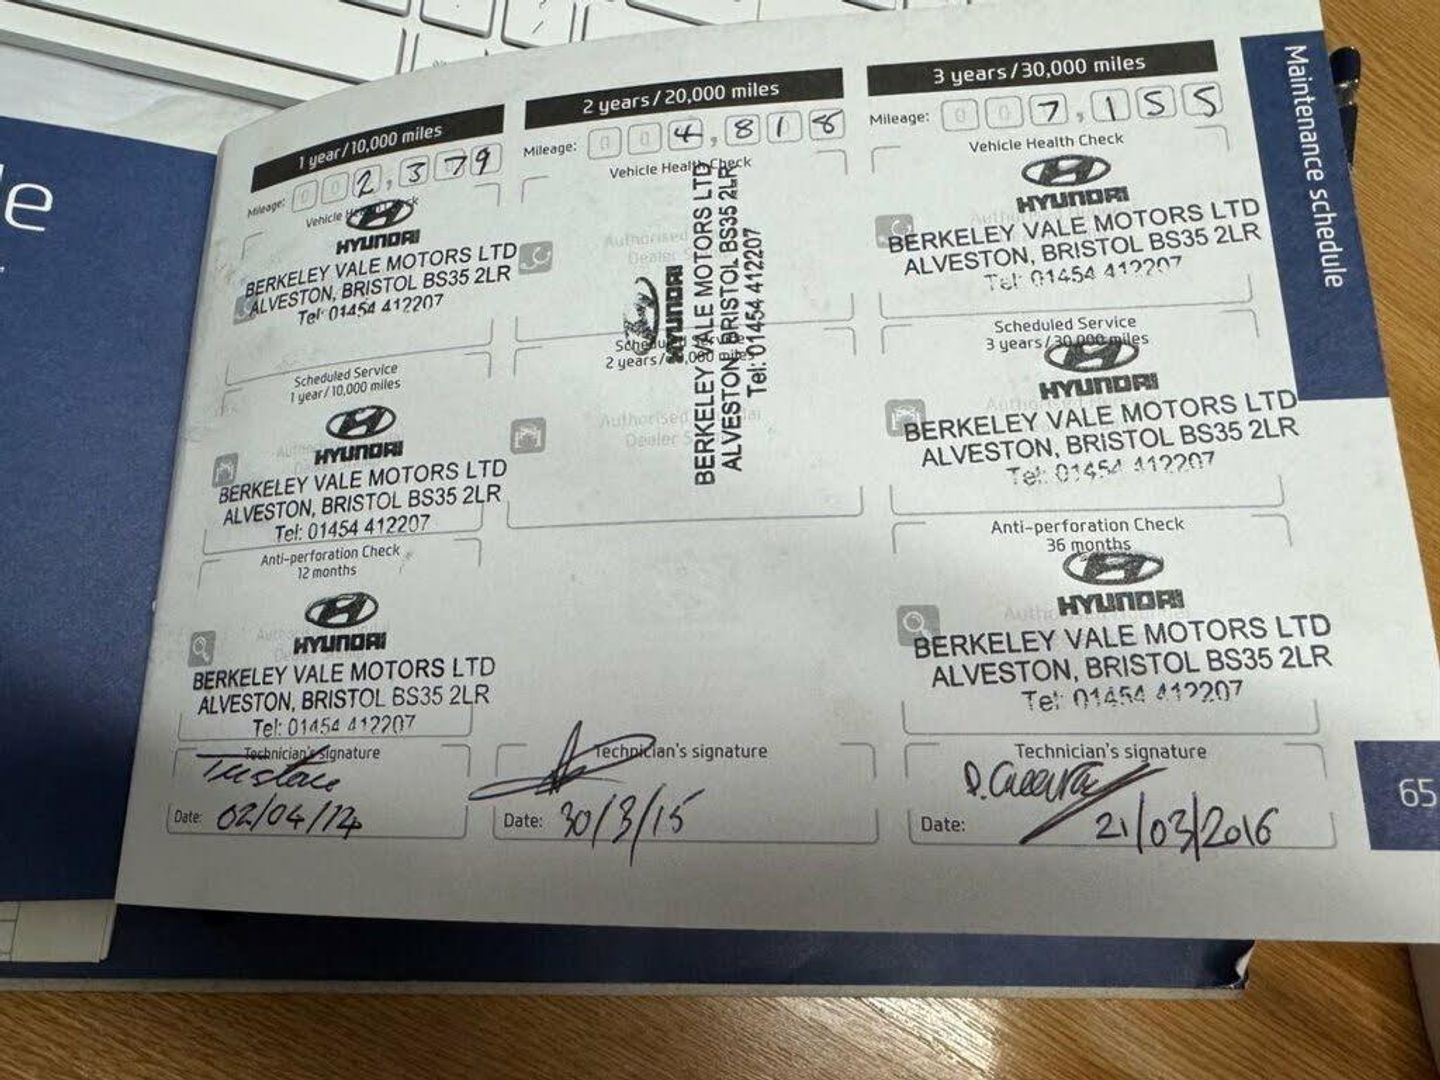 le
Maintenance schedule
1 year/10,000 miles
Mileage: 002,379
Vehicle Health Check
HYUNDAI
BERKELEY VALE MOTORS LTD
ALVESTON, BRISTOL BS35 2LR
Tel: 01454 412207
Scheduled Service
1 year/10,000 miles
HYUNDAI
BERKELEY VALE MOTORS LTD
ALVESTON, BRISTOL BS35 2LR
Tel: 01454 412207
Anti-perforation Check
12 months
HYUNDAI
BERKELEY VALE MOTORS LTD
ALVESTON, BRISTOL BS35 2LR
Tel: 01454 412207
Technician's signature
Date: 02/04/14
2 years/20,000 miles
Mileage: 004,818
Vehicle Health Check
Authorised
Dealer
HYUNDAI
BERKELEY VALE MOTORS LTD
ALVESTON, BRISTOL BS35 2LR
Tel: 01454 412207
2 years/
Authorised
Dealer
Technician's signature
Date: 30/3/15
3 years/30,000 miles
Mileage: 007,155
Vehicle Health Check
HYUNDAI
BERKELEY VALE MOTORS LTD
ALVESTON, BRISTOL BS35 2LR
Tel: 01454 412207
Scheduled Service
3 years/30,000 miles
HYUNDAI
BERKELEY VALE MOTORS LTD
ALVESTON, BRISTOL BS35 2LR
Tel: 01454 412207
Anti-perforation Check
36 months
HYUNDAI
BERKELEY VALE MOTORS LTD
ALVESTON, BRISTOL BS35 2LR
Tel: 01454 412207
Technician's signature
Date: 21/03/2016
65